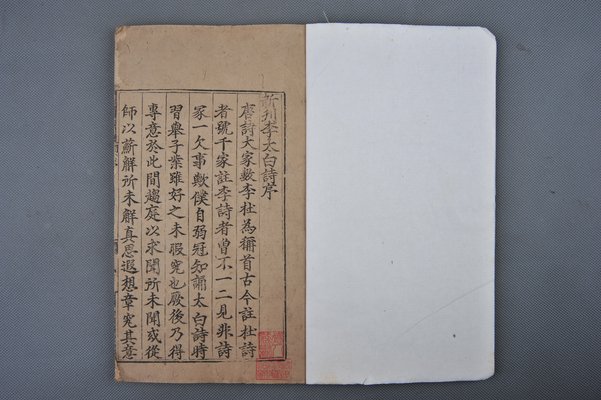 新刊李太白詩序
唐詩大家數李杜為稱首古今註杜詩
者號千家註李詩者曽不一二見非詩
家一欠事歟僕自弱冠知誦太白詩時
習舉子業雖好之未暇究也厥後乃得
專意於此間趨庭以求聞所未聞或從
師以蘄解所未解真思遐想章究其意